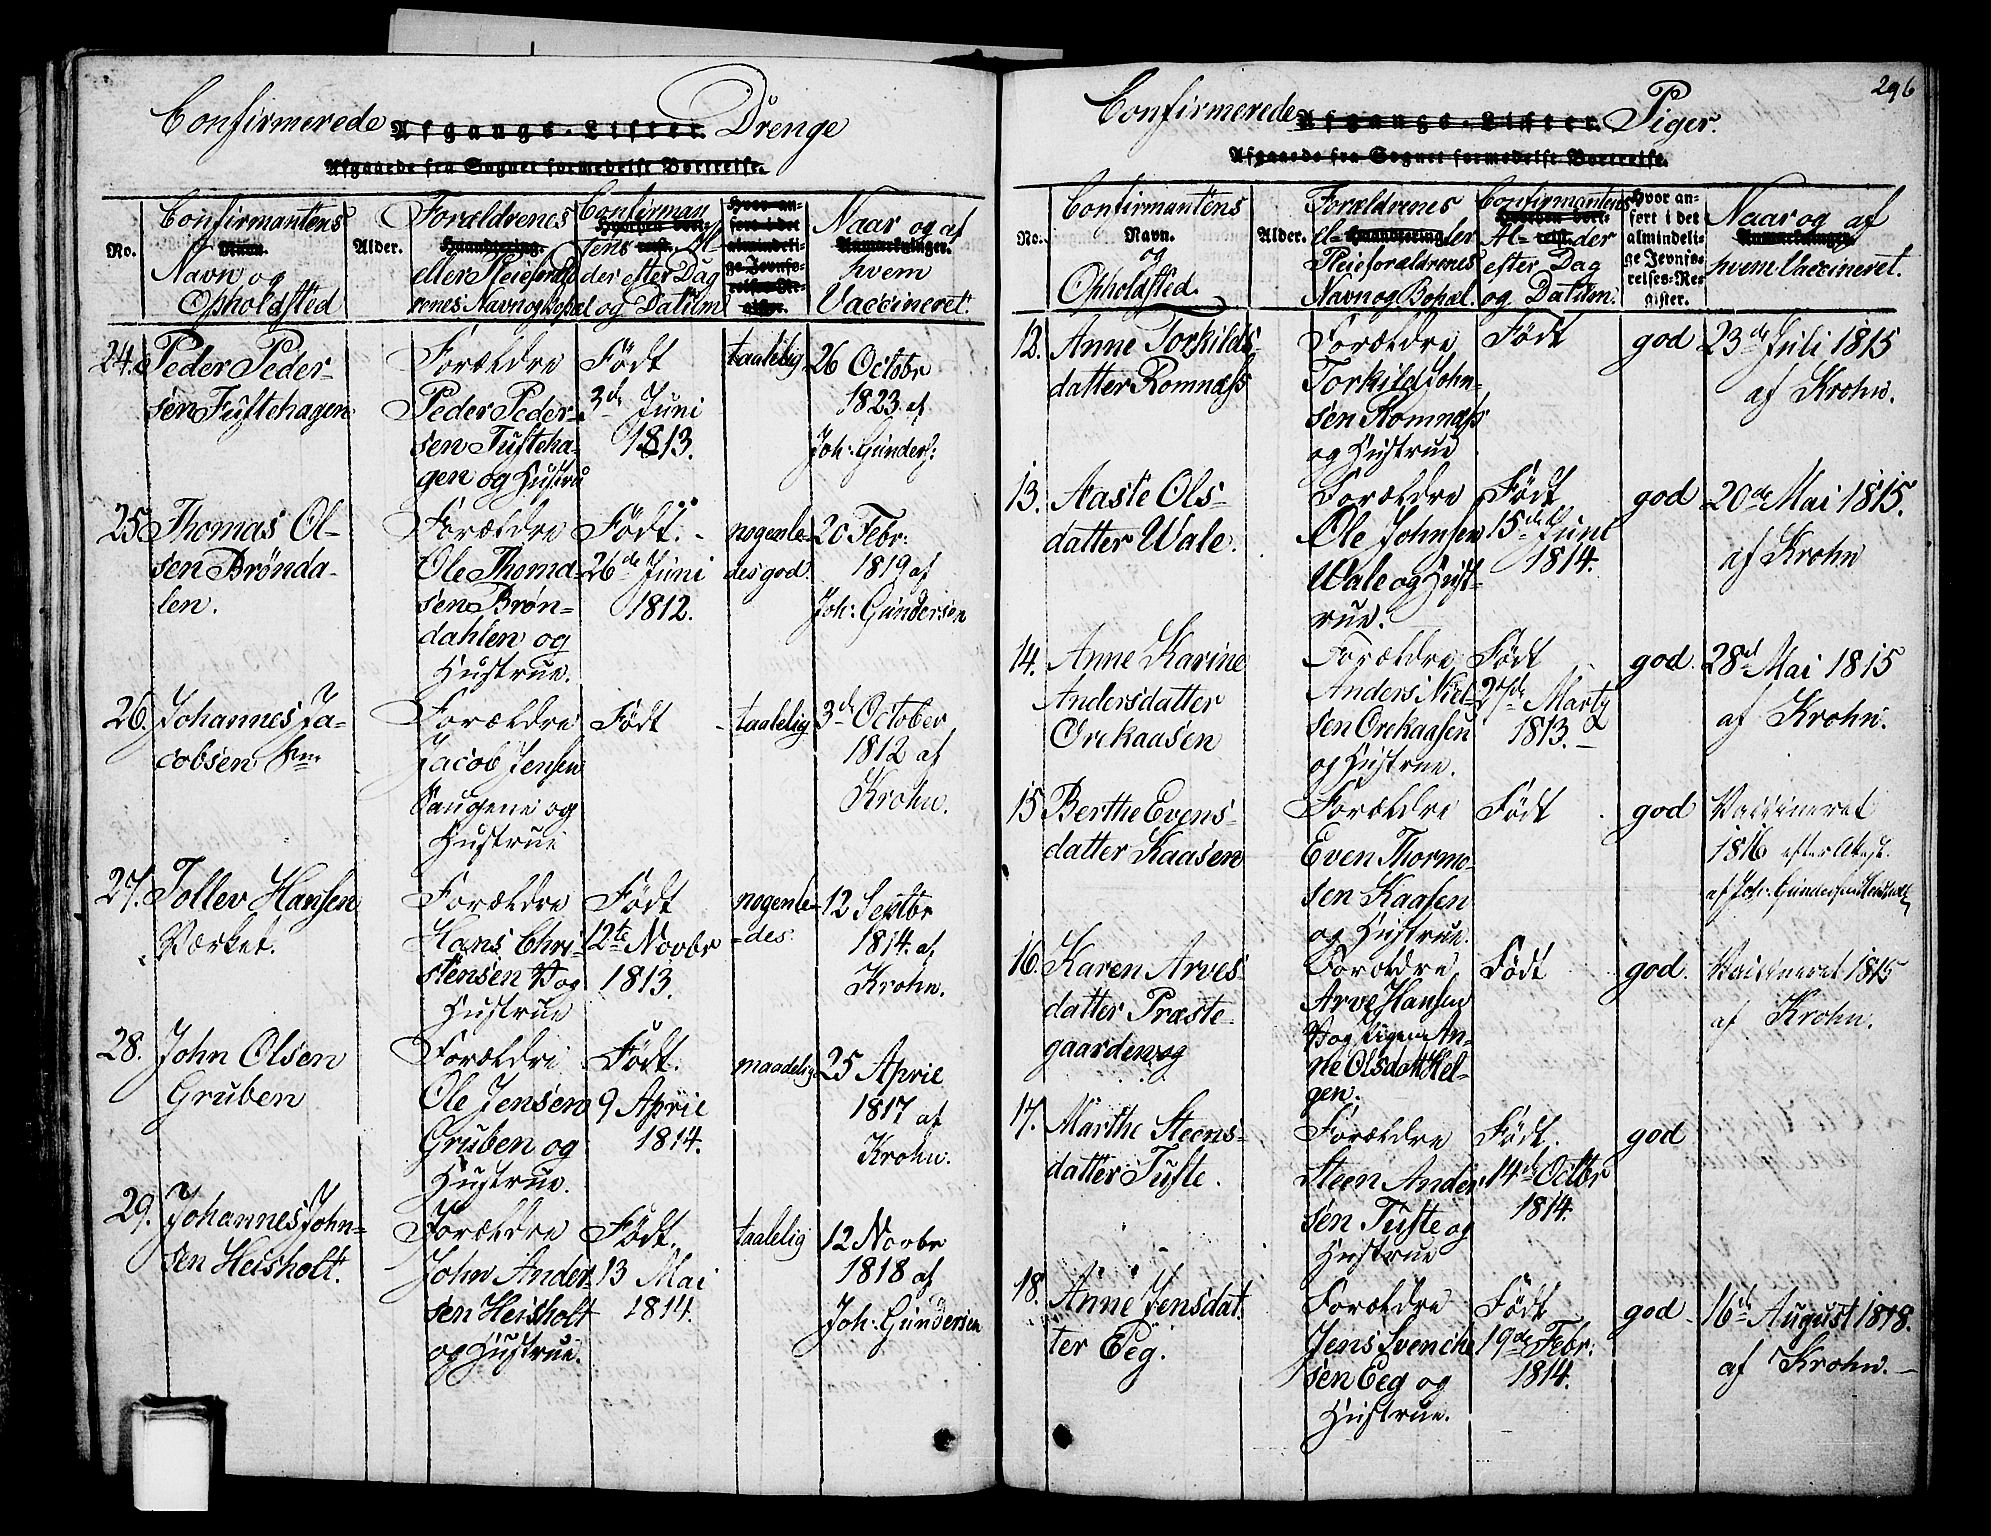 Confirmerede Afgangs-Lister. Drenge
Afgaaede fra Sognet formedelst Bortreise.
No.
Confirmantens
Navn.
Navn og
Opholdsted
Alder.
Forældrenes
Haandtering.
eller Pleieforæld
renes Navn og Bopæl
Confirman
Hvorhen bort-
tens reist. Al
der efter Dag
og Datum
Hvor an-
ført i det
almindeli-
ge Jevnfø-
relses-Re-
gister.
Naar og af
Anmærkninger.
hvem
Vaccineret.
24. Peder Peder-
sen Tuftehagen
Forældre
Peder Peder-
sen Tufteha-
gen og Hustru
Født
3de Juni
1813.
taalelig
26 Octobr
1823. af
Joh: Gunders:
25. Thomas Ol-
sen Brønda-
len.
Forældre
Ole Thoma-
sen Brøn-
dahlen og
Hustrue.
Født.
26de Juni
1812.
nogenle-
des god.
20 Febr:
1819 af
Joh: Gundersen
26. Johannes Ja-
cobsen
Forældre
Jacob Jensen
Saugene og
Hustrue
Født
taalelig
3de October
1812 af
Krohn.
27. Tollev Hansen
Værket.
Forældre
Hans Chri-
stensen V og
Hustrue
Født
12te Novbr
1813.
nogenle-
des.
12 Septbr
1814. af
Krohn.
28. John Olsen
Gruben
Forældre
Ole Jensen
Gruben og
Hustrue.
Født.
9 April
1814.
maadelig
25 April
1817 af
Krohn.
29. Johannes John-
sen Heisholt.
Forældre
John Ander-
sen Heisholt
og Hustrue.
Født.
13 Mai
1814.
taalelig
12 Novbr
1818 af
Joh: Gundersen
296
Confirmerede Afgangs-Lister. Piger.
Afgaaede fra Sognet formedelst Bortreise.
No.
Confirmantens
Navn.
og
Opholdsted
Alder.
Forældrenes
el- Haandtering ler
Pleieforældrenes
Navn og Bopæl.
Confirmantens
Hvorhen bort-
Al- reist. der
efter Dag
og Datum.
Hvor an-
ført i det
almindeli-
ge Jevnfø-
relses-Re-
gister.
Naar og af
Anmærkninger.
hvem Vaccineret.
12. Anne Torkilds-
datter Romnæss
Forældre
Torkild John-
sen Romnæss
og Hustrue
Født
god
23de Juli 1815
af Krohn.
13. Aaste Ols-
datter Wale.
Forældre
Ole Johnsen
Wale og Hust-
rue.
Født
15de Juni
1814.
god
20de Mai 1815.
af Krohn
14. Anne Karine
Andersdatter
Orekaasen
Forældre
Anders Niel-
sen Orekaasen
og Hustrue.
Født
27de Marty
1813.
god.
28de Mai 1815
af Krohn.
15 Berthe Evens-
datter Kaasen
Forældre
Even Thormo-
sen Kaasen
og Hustrue.
Født
god
Vaccineret
1816 efter Atest.
af Joh: Gundersen
16. Karen Arves-
datter Præste-
gaarden og
Forældre
Arve Hansen
V og Pigen An-
ne Olsdatt Hel-
gen.
Født
god.
Vaccineret 1815
af Krohn.
17. Marthe Steens-
datter Tufte.
Forældre
Steen Ander-
sen Tufte og
Hustrue
Født.
14de Octbr
1814.
god
18. Anne Jensdat-
ter Eeg.
Forældre
Jens Svenche
sen Eeg og
Hustrue.
Født
19de Febr:
1814.
god
16de August 1818.
af Krohn.